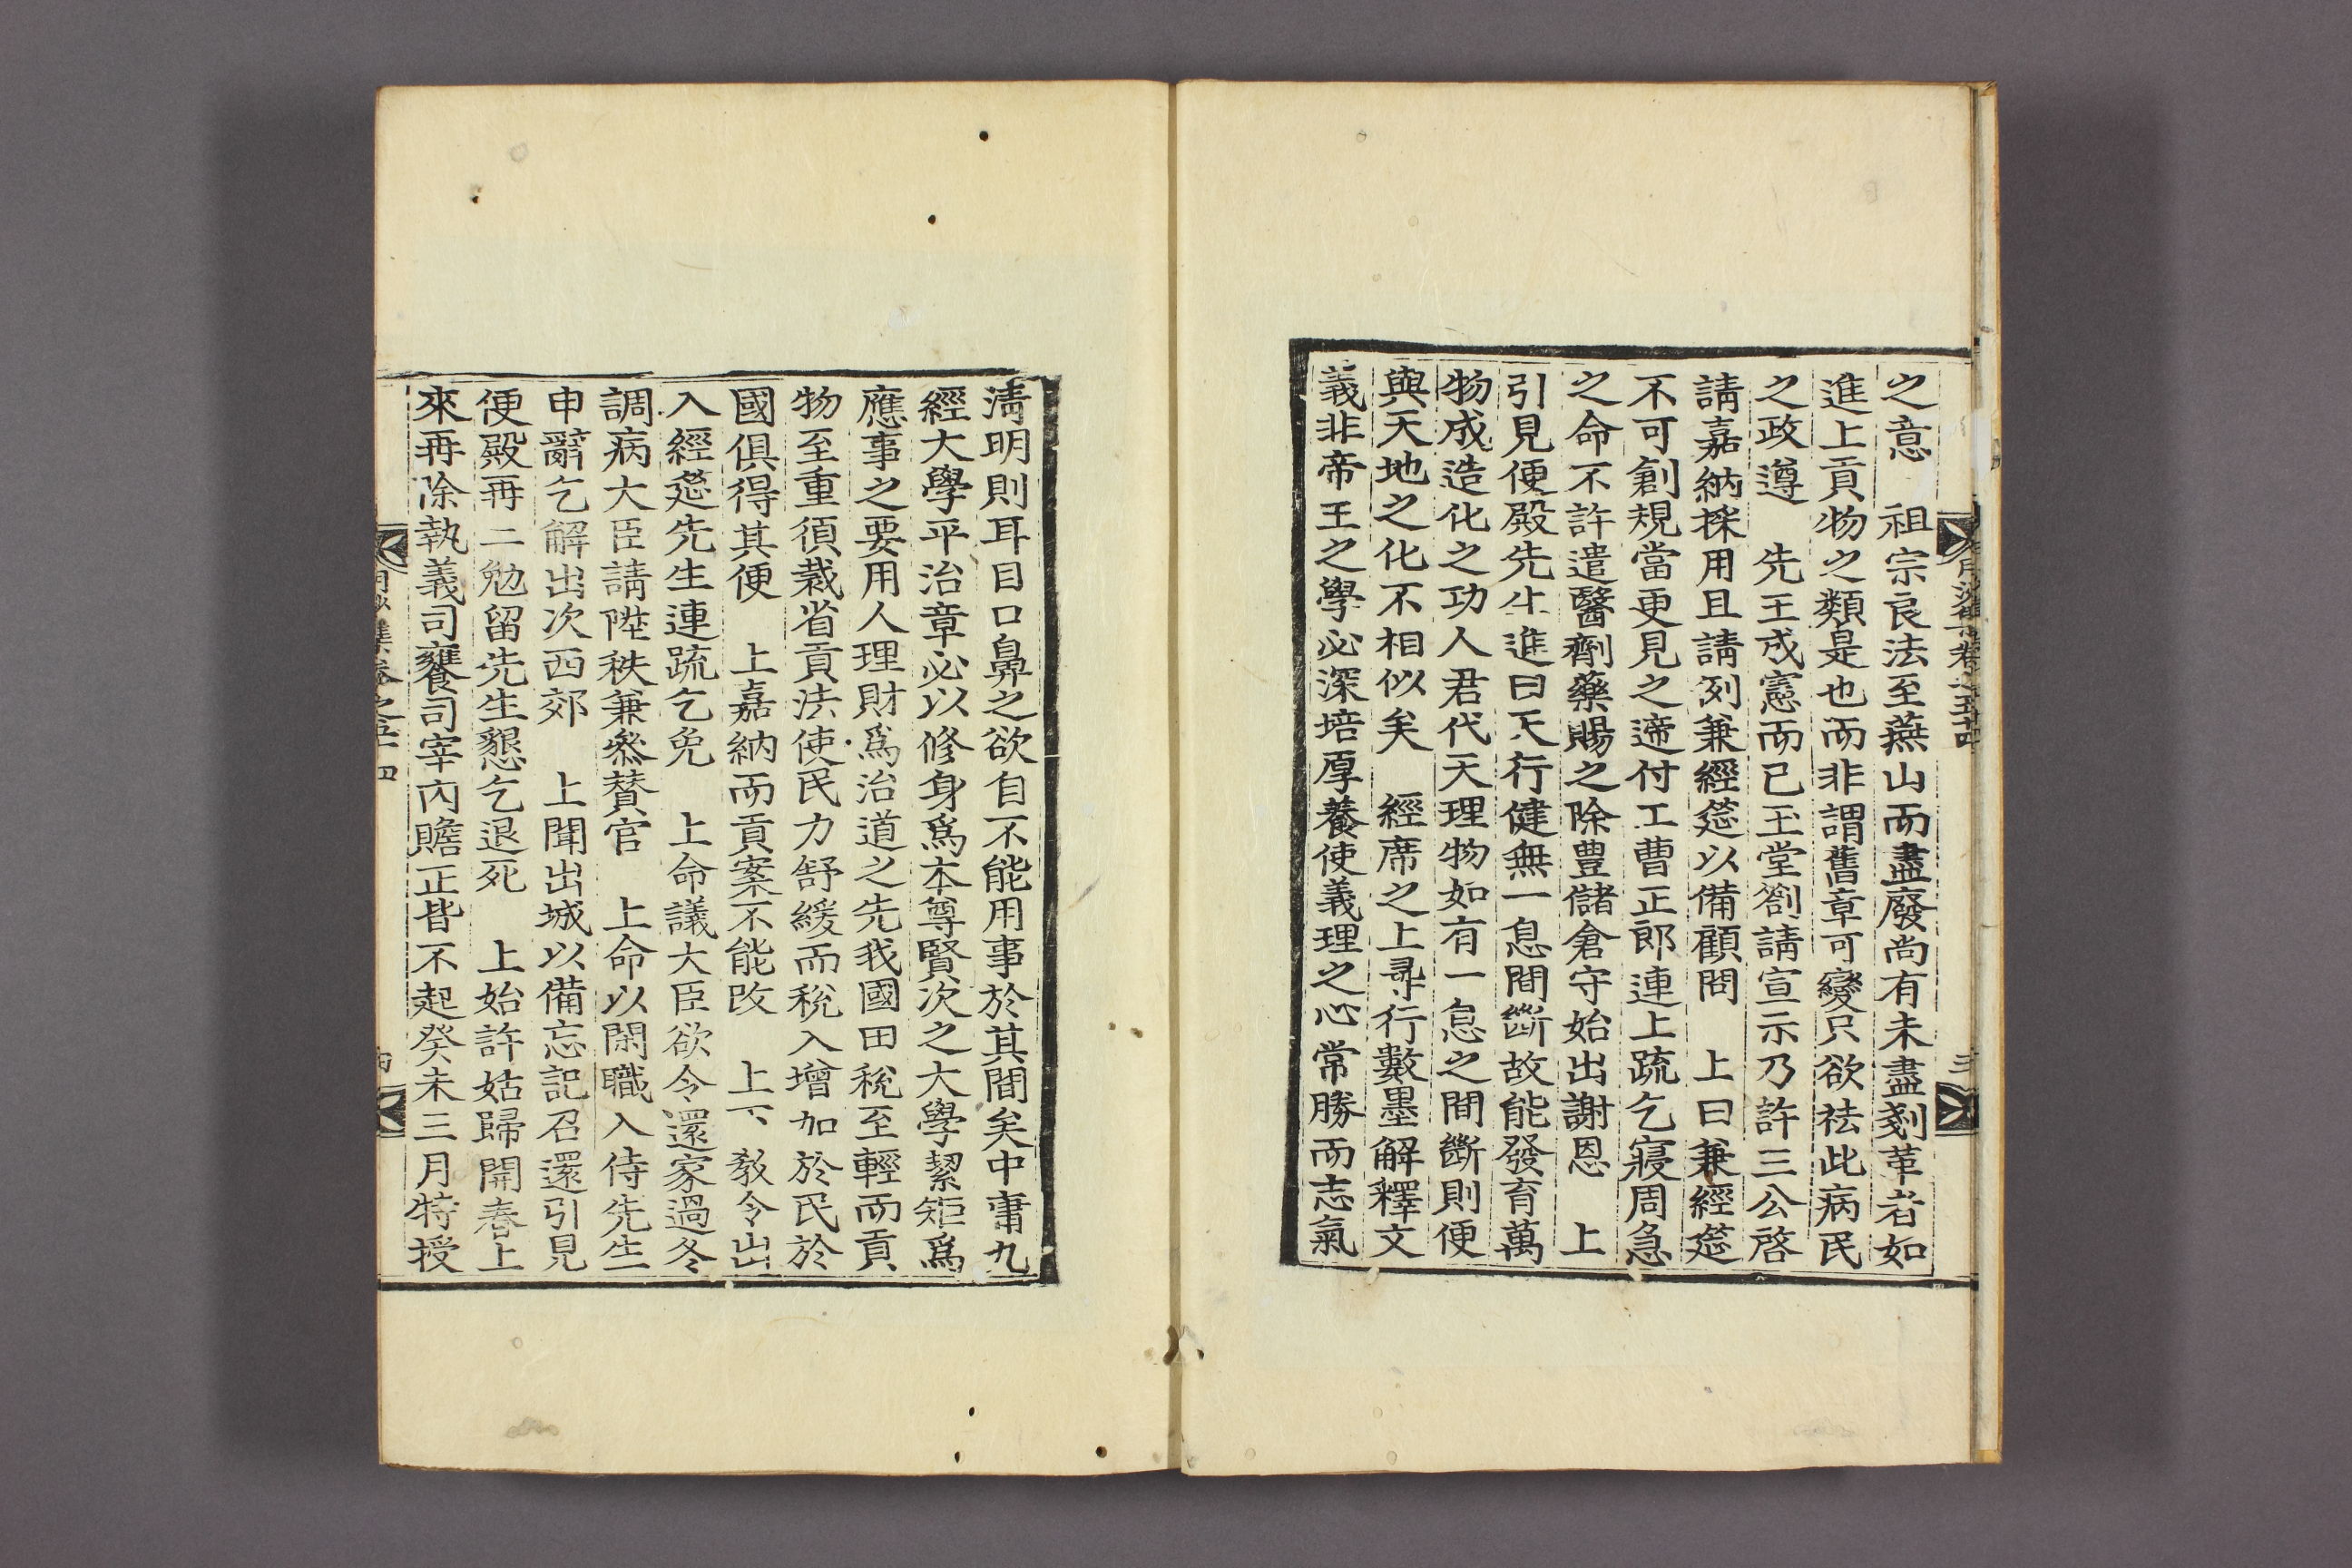 之意 祖宗良法至燕山而盡廢尚有未盡剗革者如
進上貢物之類是也而非謂舊章可變只欲祛此病民
之政遵 先王成憲而已玉堂劄請宣示乃許三公啓
請嘉納採用且請例兼經筵以備顧問 上曰兼經筵
不可創規當更見之遞付工曹正郎連上疏乞寢周急
之命不許遣醫劑藥賜之除豊儲倉守始出謝恩 上
引見便殿先生進曰天行健無一息間斷故能發育萬
物成造化之功人君代天理物如有一息之間斷則便
與天地之化不相似矣 經席之上尋行數墨解釋文
義非帝王之學必深培厚養使義理之心常勝而志氣
清明則耳目口鼻之欲自不能用事於其間矣中庸九
經大學平治章必以修身爲本尊賢次之大學絜矩爲
應事之要用人理財爲治道之先我國田稅至輕而貢
物至重須裁省貢法使民力舒緩而稅入增加於民於
國俱得其便 上嘉納而貢案不能改 上下敎令出
入經筵先生連疏乞免 上命議大臣欲令還家過冬
調病大臣請陞秩兼參贊官 上命以閑職入侍先生
申辭乞解出次西郊 上聞出城以備忘記召還引見
便殿再三勉留先生懇乞退死 上始許姑歸開春上
來再除執義司饔司宰內贍正皆不起癸未三月特授
月沙集卷之五十四